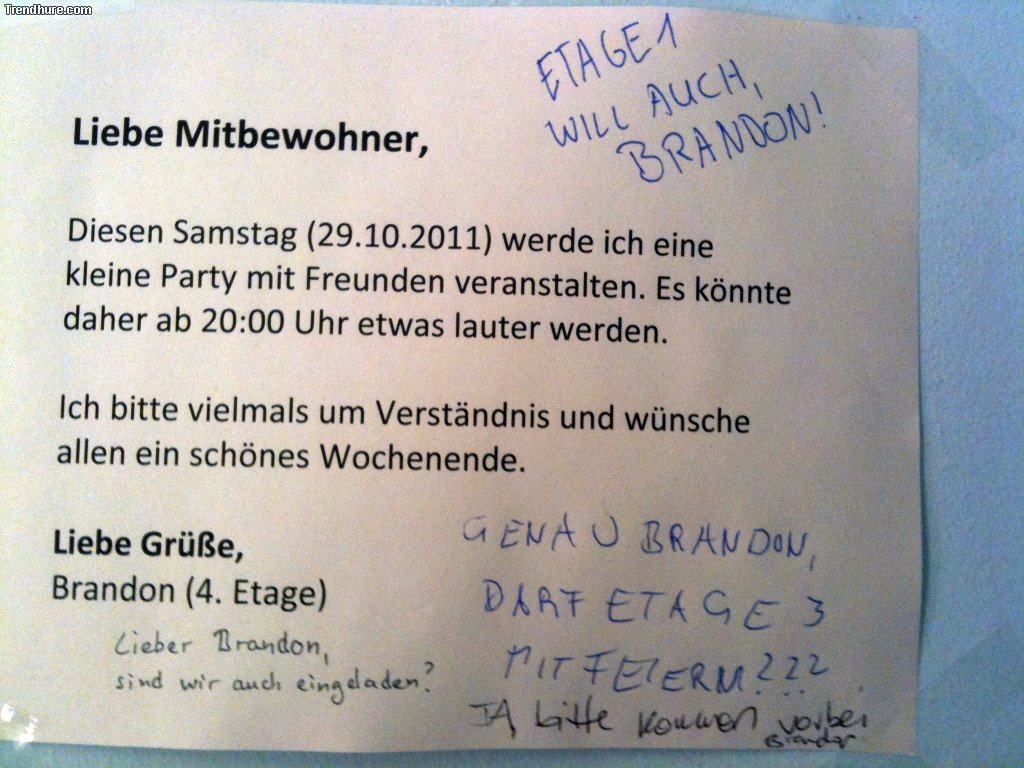 Trendhure.com
ETAGE 1
WILL AUCH,
BRANDON!
Liebe Mitbewohner,
Diesen Samstag (29.10.2011) werde ich eine
kleine Party mit Freunden veranstalten. Es könnte
daher ab 20:00 Uhr etwas lauter werden.
Ich bitte vielmals um Verständnis und wünsche
allen ein schönes Wochenende.
Liebe Grüße,
Brandon (4. Etage)
Lieber Brandon,
sind wir auch eingeladen?
GENAU BRANDON,
DARF ETAGE 3
MITFEIERN???
JA bitte kommen vorbei
Brandon